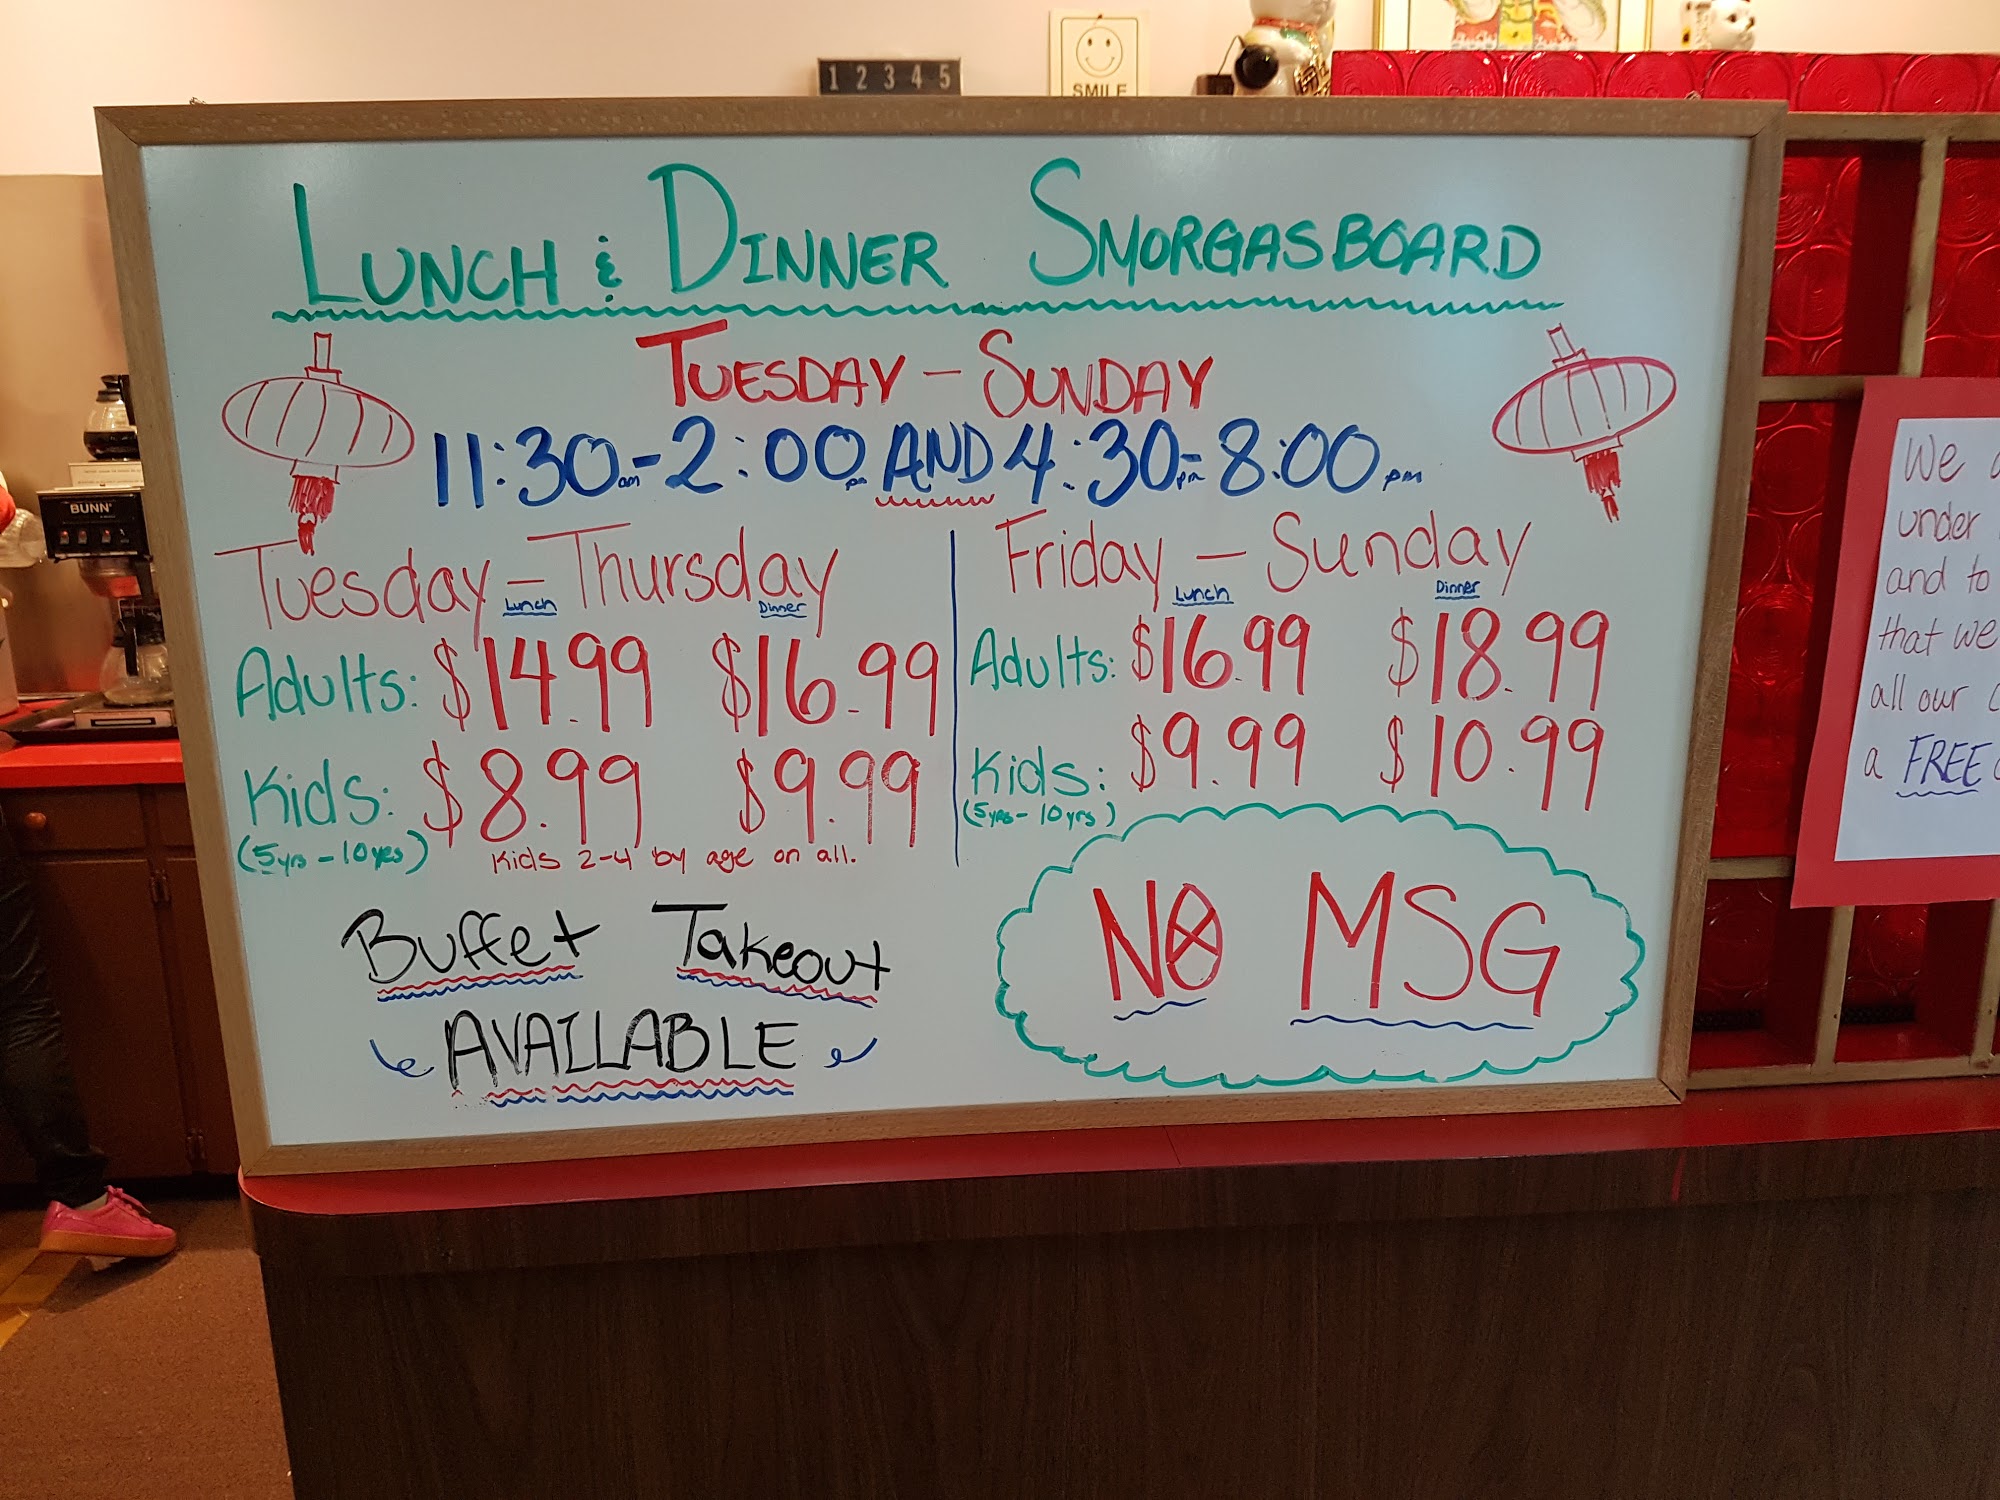 1 2 3 4 5
SMILE
LUNCH & DINNER SMORGASBOARD
TUESDAY - SUNDAY
11:30am - 2:00pm AND 4:30pm - 8:00pm
Tuesday - Thursday
Lunch Dinner
Adults: $14.99 $16.99
Kids: $8.99 $9.99
(5yrs - 10yrs)
Kids 2-4 by age on all.
Friday - Sunday
Lunch Dinner
Adults: $16.99 $18.99
Kids: $9.99 $10.99
(5yrs - 10yrs)
Buffet Takeout
AVAILABLE
NO MSG
BUNN
We
under
and to
that we
all our
a FREE